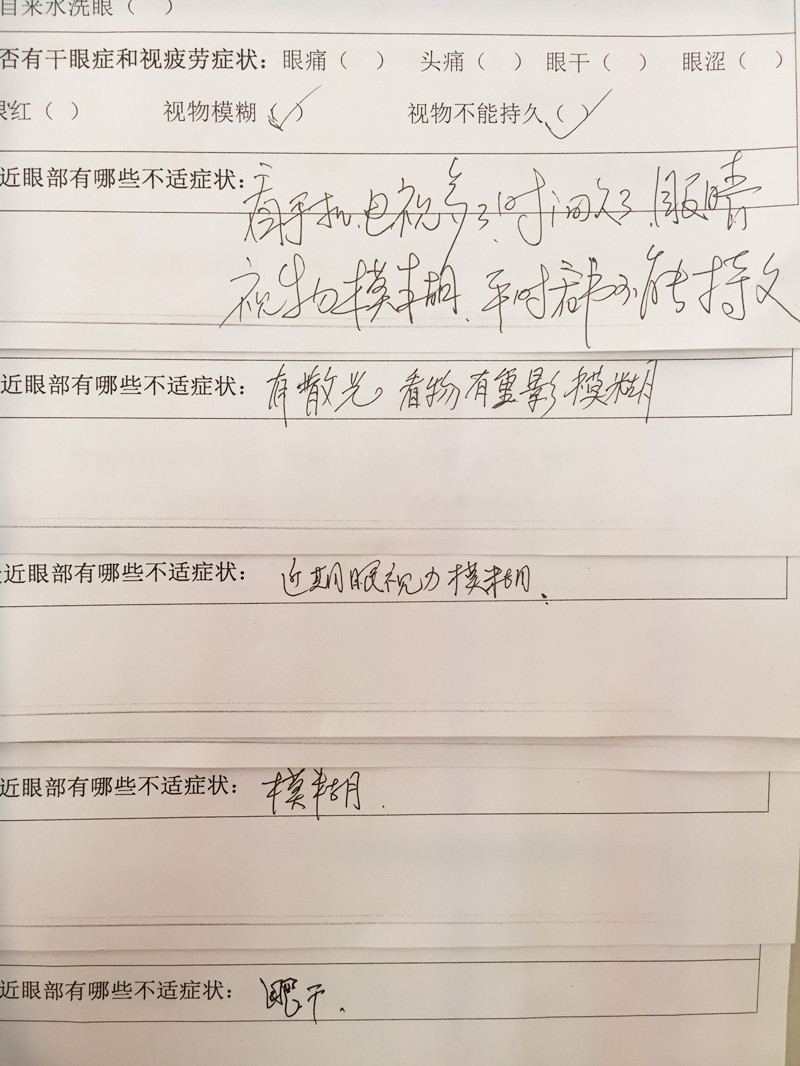 自来水洗眼（ ）
否有干眼症和视疲劳症状：眼痛（ ） 头痛（ ） 眼干（ ） 眼涩（ ）
眼红（ ） 视物模糊（✓） 视物不能持久（✓）
近眼部有哪些不适症状：看手机、电视多了，时间久了，眼睛
视物模糊，平时都不能持久
近眼部有哪些不适症状：有散光。看物有重影模糊
近眼部有哪些不适症状：近期眼视力模糊.
近眼部有哪些不适症状：模糊.
近眼部有哪些不适症状：眼干.